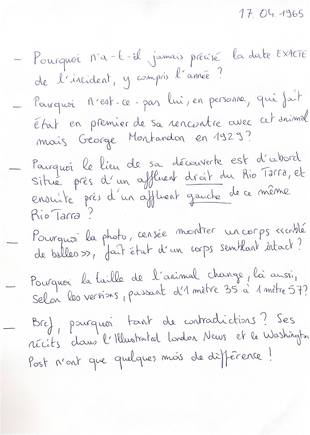 17.04.1965
— Pourquoi n'a-t-il jamais précisé la date EXACTE
de l'incident, y compris l'année ?
— Pourquoi n'est-ce-pas lui, en personne, qui fait
état en premier de sa rencontre avec cet animal
mais George Montandon en 1929 ?
— Pourquoi le lieu de sa découverte est d'abord
situé près d'un affluent droit du Rio Tarra, et
ensuite près d'un affluent gauche de ce même
Rio Tarra ?
— Pourquoi la photo, censée montrer un corps «criblé
de balles», fait état d'un corps semblant intact ?
— Pourquoi la taille de l'animal change, lui aussi,
selon les versions, passant d'1 mètre 35 à 1 mètre 57?
— Bref, pourquoi tant de contradictions ? Ses
récits dans l'Illustrated London News et le Washington
Post n'ont que quelques mois de différence !